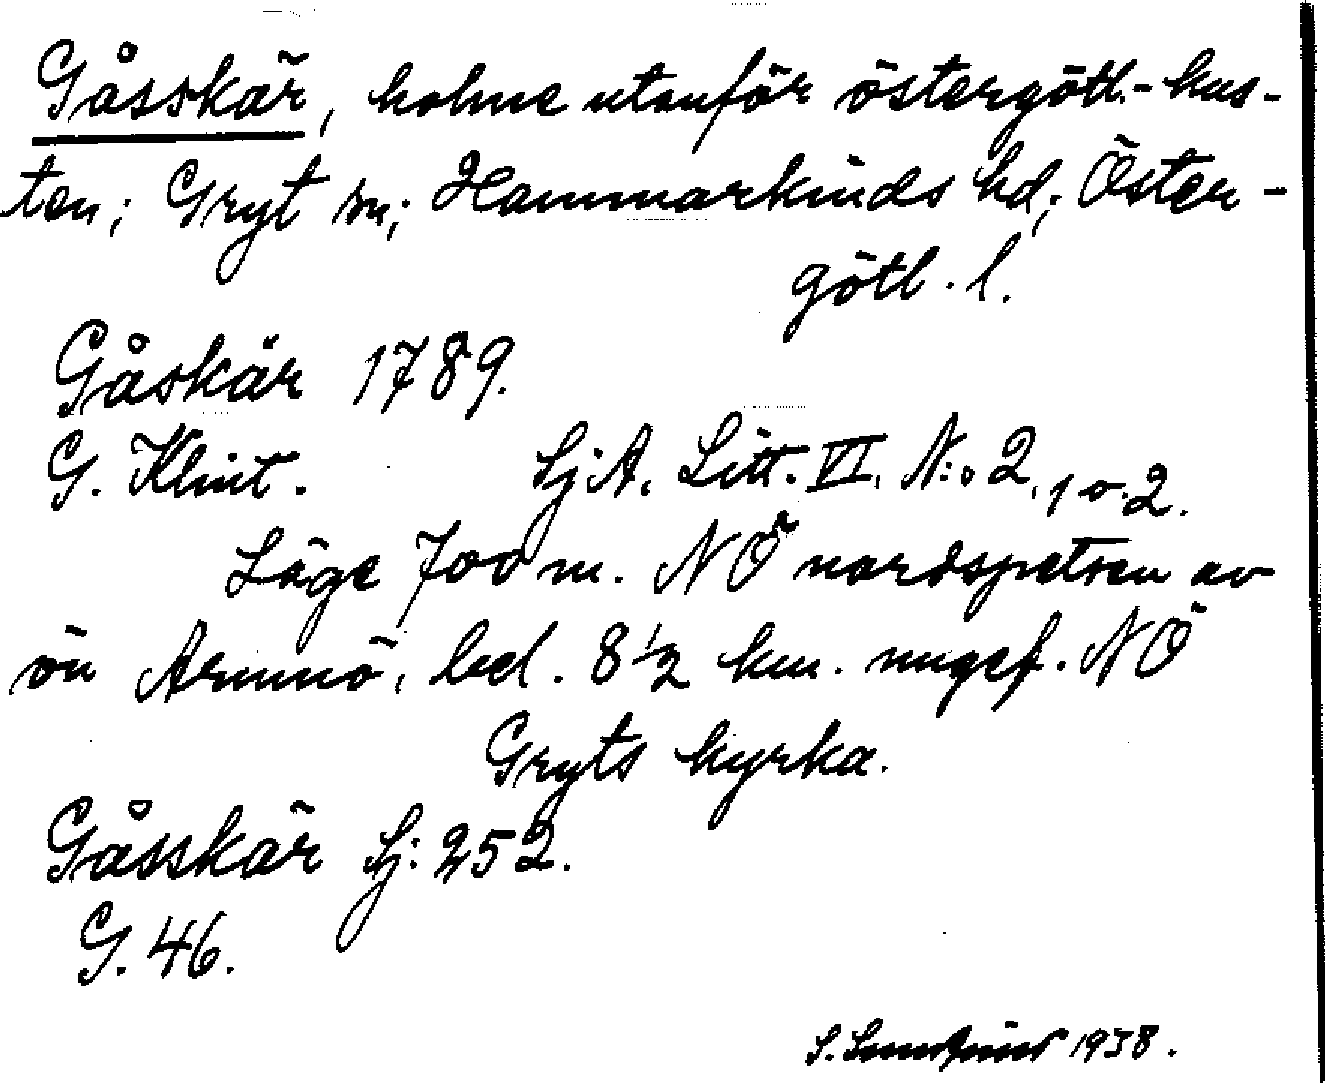 Gåsskär, holme utanför östergötl.-kus-
ten; Gryt sn; Hammarkinds hd; Öster-
götl. l.
Gåskär 1789.
G. Klint. SjA. Litt. VI. N:o 2, 1 o. 2.
Läge 700 m. NÖ nordspetsen av
ön Armnö, bel. 8 1/2 km. ungef. NÖ
Gryts kyrka.
Gåsskär Sj: 252.
G. 46.
S. 1938.